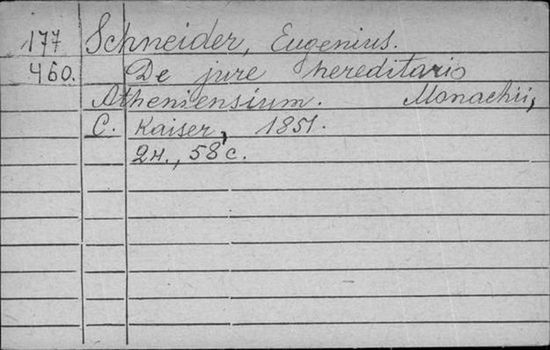 177 Schneider, Eugenius.
460. De jure hereditario
Atheniensium. Monachii,
C. Kaiser, 1851.
2н., 58 с.